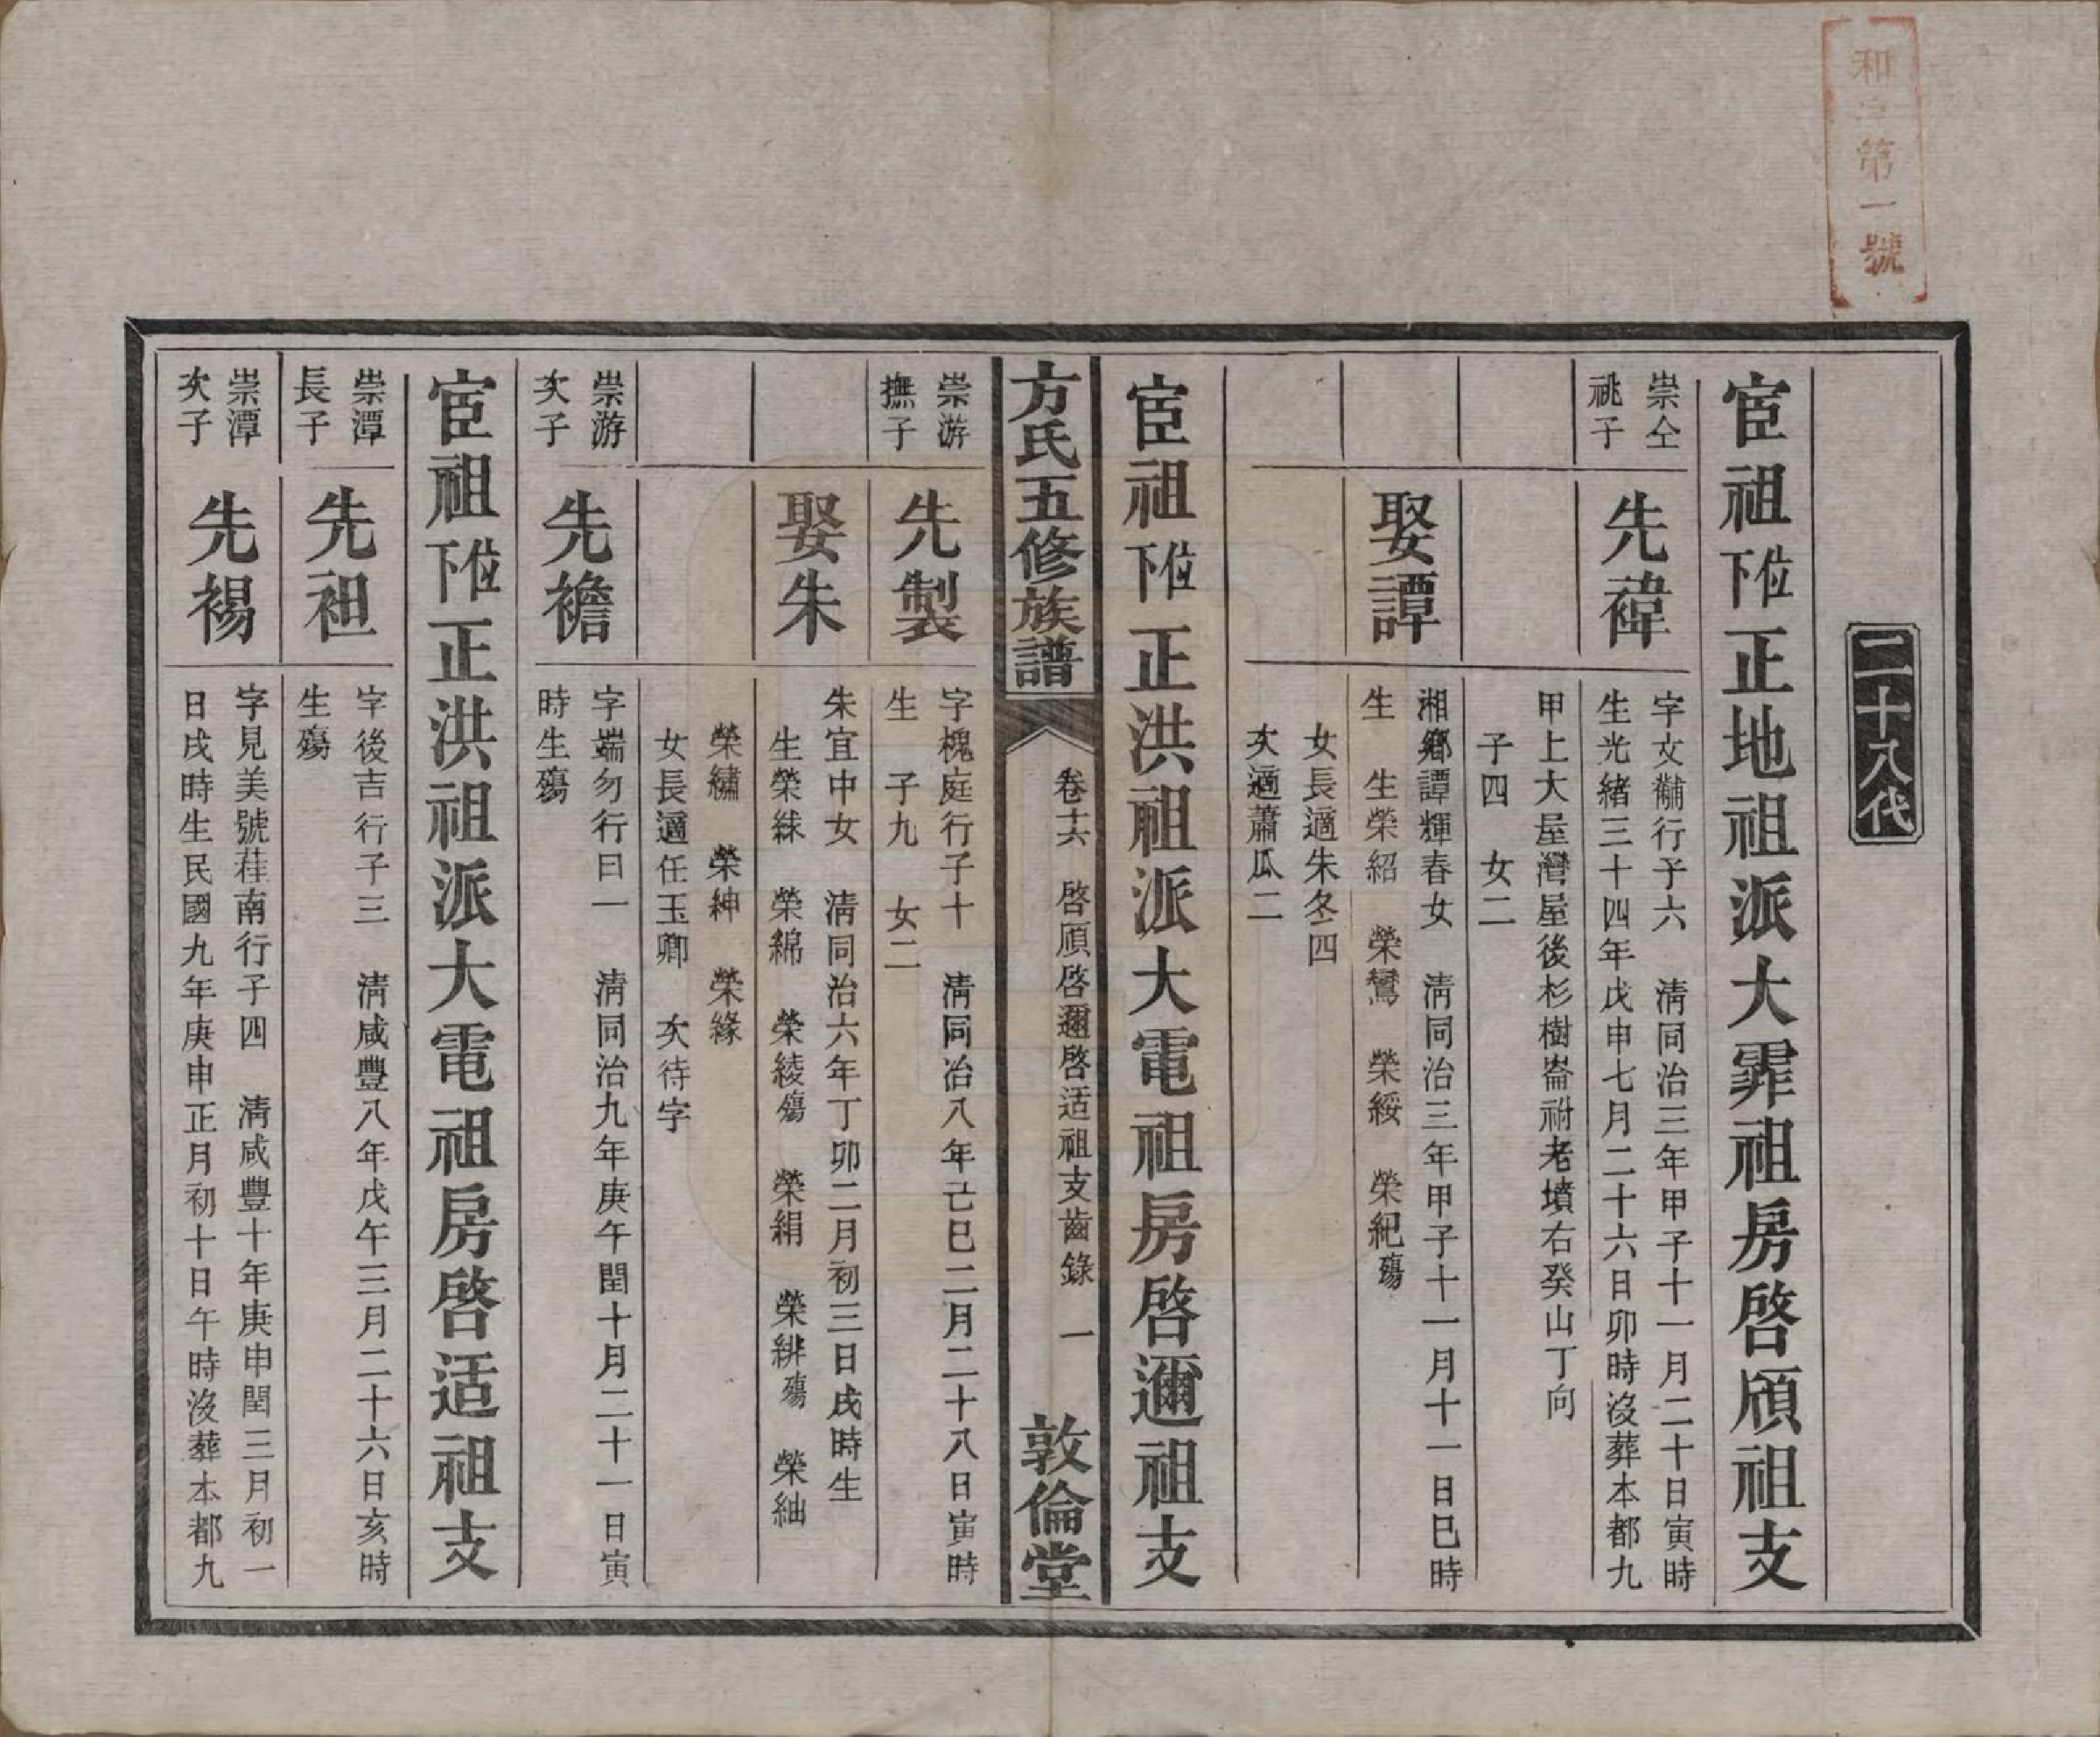 和字第一號
二十八代
宦祖位下正地祖派大霏祖房啓頎祖支
崇仝
祧子
先禕
字文黼行子六　清同治三年甲子十一月二十日寅時
生光緒三十四年戊申七月二十六日卯時沒葬本都九
甲上大屋灣屋後杉樹崙祔老墳右癸山丁向
子四　女二
娶譚
湘鄉譚輝春女　清同治三年甲子十一月十一日巳時
生　生榮紹　榮鸞　榮綏　榮紀殤
女長適朱冬四
次適蕭瓜二
宦祖位下正洪祖派大電祖房啓邇祖支
方氏五修族譜
卷十六　啓頎啓邇啓适祖支齒錄　一
敦倫堂
崇游
撫子
先製
字槐庭行子十　清同治八年己巳二月二十八日寅時
生　子九　女二
娶朱
朱宜中女　清同治六年丁卯二月初三日戌時生
生榮綀　榮綿　榮綾殤　榮絹　榮緋殤　榮紬
榮繡　榮紳　榮緣
女長適任玉卿　次待字
崇游
次子
先襜
字端勿行日一　清同治九年庚午閏十月二十一日寅
時生殤
宦祖位下正洪祖派大電祖房啓适祖支
崇潭
長子
先袓
字後吉行子三　清咸豐八年戊午三月二十六日亥時
生殤
崇潭
次子
先裼
字見美號荏南行子四　清咸豐十年庚申閏三月初一
日戌時生民國九年庚申正月初十日午時沒葬本都九